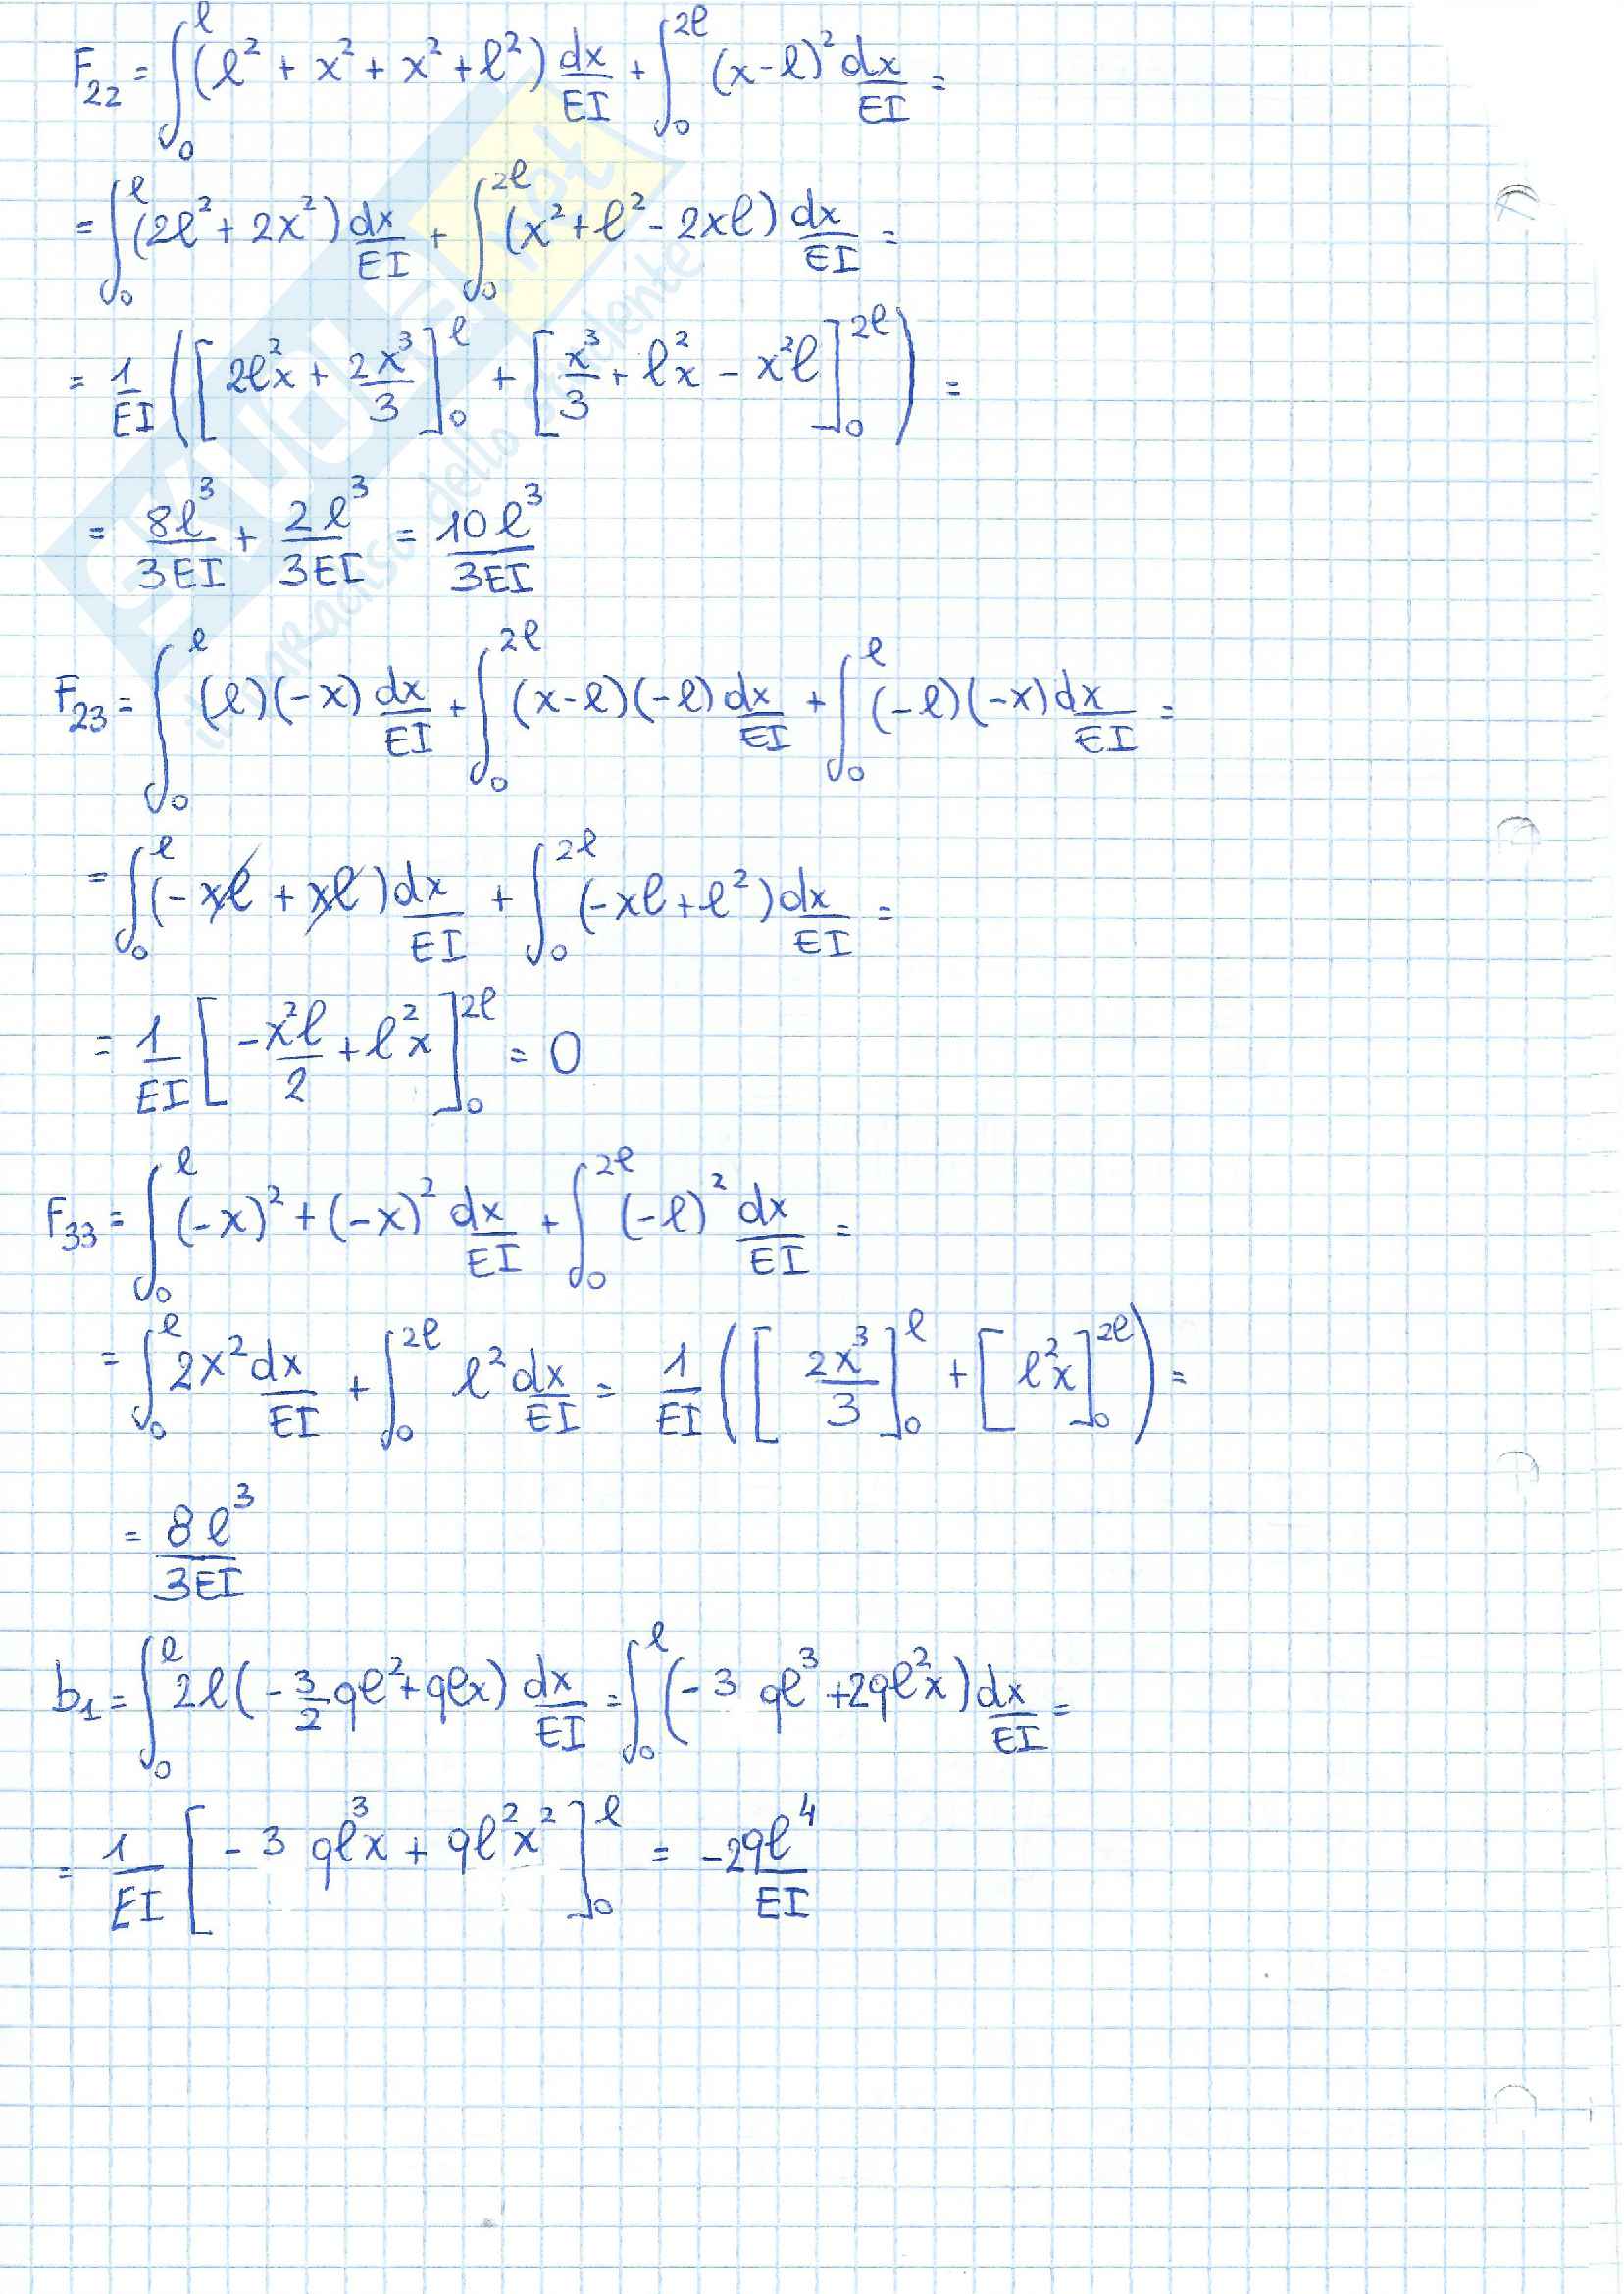 F₂₂ = ∫₀^ℓ (ℓ² + x² + x² + ℓ²) dx/EI + ∫₀^2ℓ (x-ℓ)² dx/EI =
= ∫₀^ℓ (2ℓ² + 2x²) dx/EI + ∫₀^2ℓ (x² + ℓ² - 2xℓ) dx/EI =
= 1/EI ( [ 2ℓ²x + 2x³/3 ]₀^ℓ + [ x³/3 + ℓ²x - x²ℓ ]₀^2ℓ ) =
= 8ℓ³/3EI + 2ℓ³/3EI = 10ℓ³/3EI
F₂₃ = ∫₀^ℓ (ℓ)(-x) dx/EI + ∫₀^2ℓ (x-ℓ)(-ℓ) dx/EI + ∫₀^ℓ (-ℓ)(-x) dx/EI =
= ∫₀^ℓ (-xℓ + xℓ) dx/EI + ∫₀^2ℓ (-xℓ + ℓ²) dx/EI =
= 1/EI [ -x²ℓ/2 + ℓ²x ]₀^2ℓ = 0
F₃₃ = ∫₀^ℓ (-x)² + (-x)² dx/EI + ∫₀^2ℓ (-ℓ)² dx/EI =
= ∫₀^ℓ 2x² dx/EI + ∫₀^2ℓ ℓ² dx/EI = 1/EI ( [ 2x³/3 ]₀^ℓ + [ ℓ²x ]₀^2ℓ ) =
= 8ℓ³/3EI
b₁ = ∫₀^ℓ 2ℓ (-3/2 qℓ² + qℓx) dx/EI = ∫₀^ℓ (-3 qℓ³ + 2qℓ²x) dx/EI =
= 1/EI [ -3 qℓ³x + qℓ²x² ]₀^ℓ = -2qℓ⁴/EI